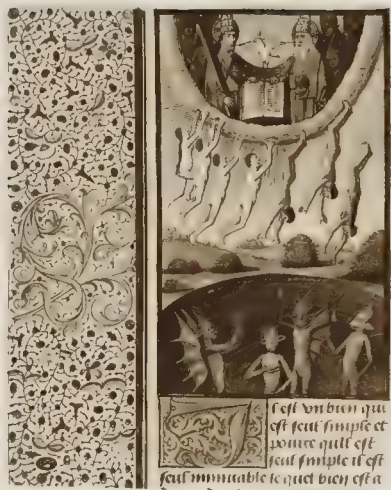 J l est vn bien qui
est seul simple et
pource quil est
seul simple il est
seul jmmuable le quel bien est a